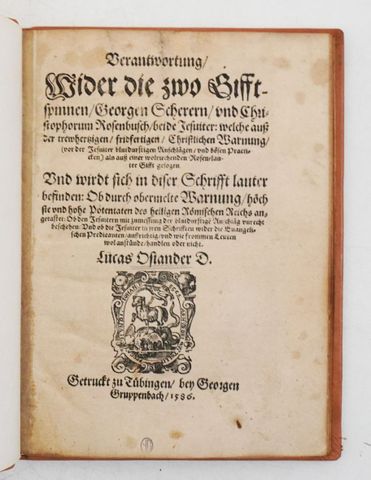 Verantwortung/
Wider die zwo Gifft-
spinnen/Georgen Scherern/vnd Chri-
stophorum Rosenbusch/beide Jesuiter: welche auß
der trewhertzigen/fridfertigen/Christlichen Warnung/
(vor der Jesuiter blutdurstigen Anschlägen/vnd bösen Practi-
cken) als auß einer wolriechenden Rosen/lau-
ter Gifft gesogen.
Vnd wirdt sich in diser Schrifft lauter
befinden: Ob durch obermelte Warnung/höch
ste vnd hohe Potentaten des heiligen Römischen Reichs an-
getastet: Ob den Jesuitern mit zumessung der blutdurstigē Anschläg vnrecht
beschehen: Vnd ob die Jesuiter in jren Schrifften wider die Euangeli-
schen Predicanten/auffrichtig/vnd wie frommen Leuten
wol anstünde/handlen oder nicht.
Lucas Osiander D.
Getruckt zu Tübingen/bey Georgen
Gruppenbach/1586.